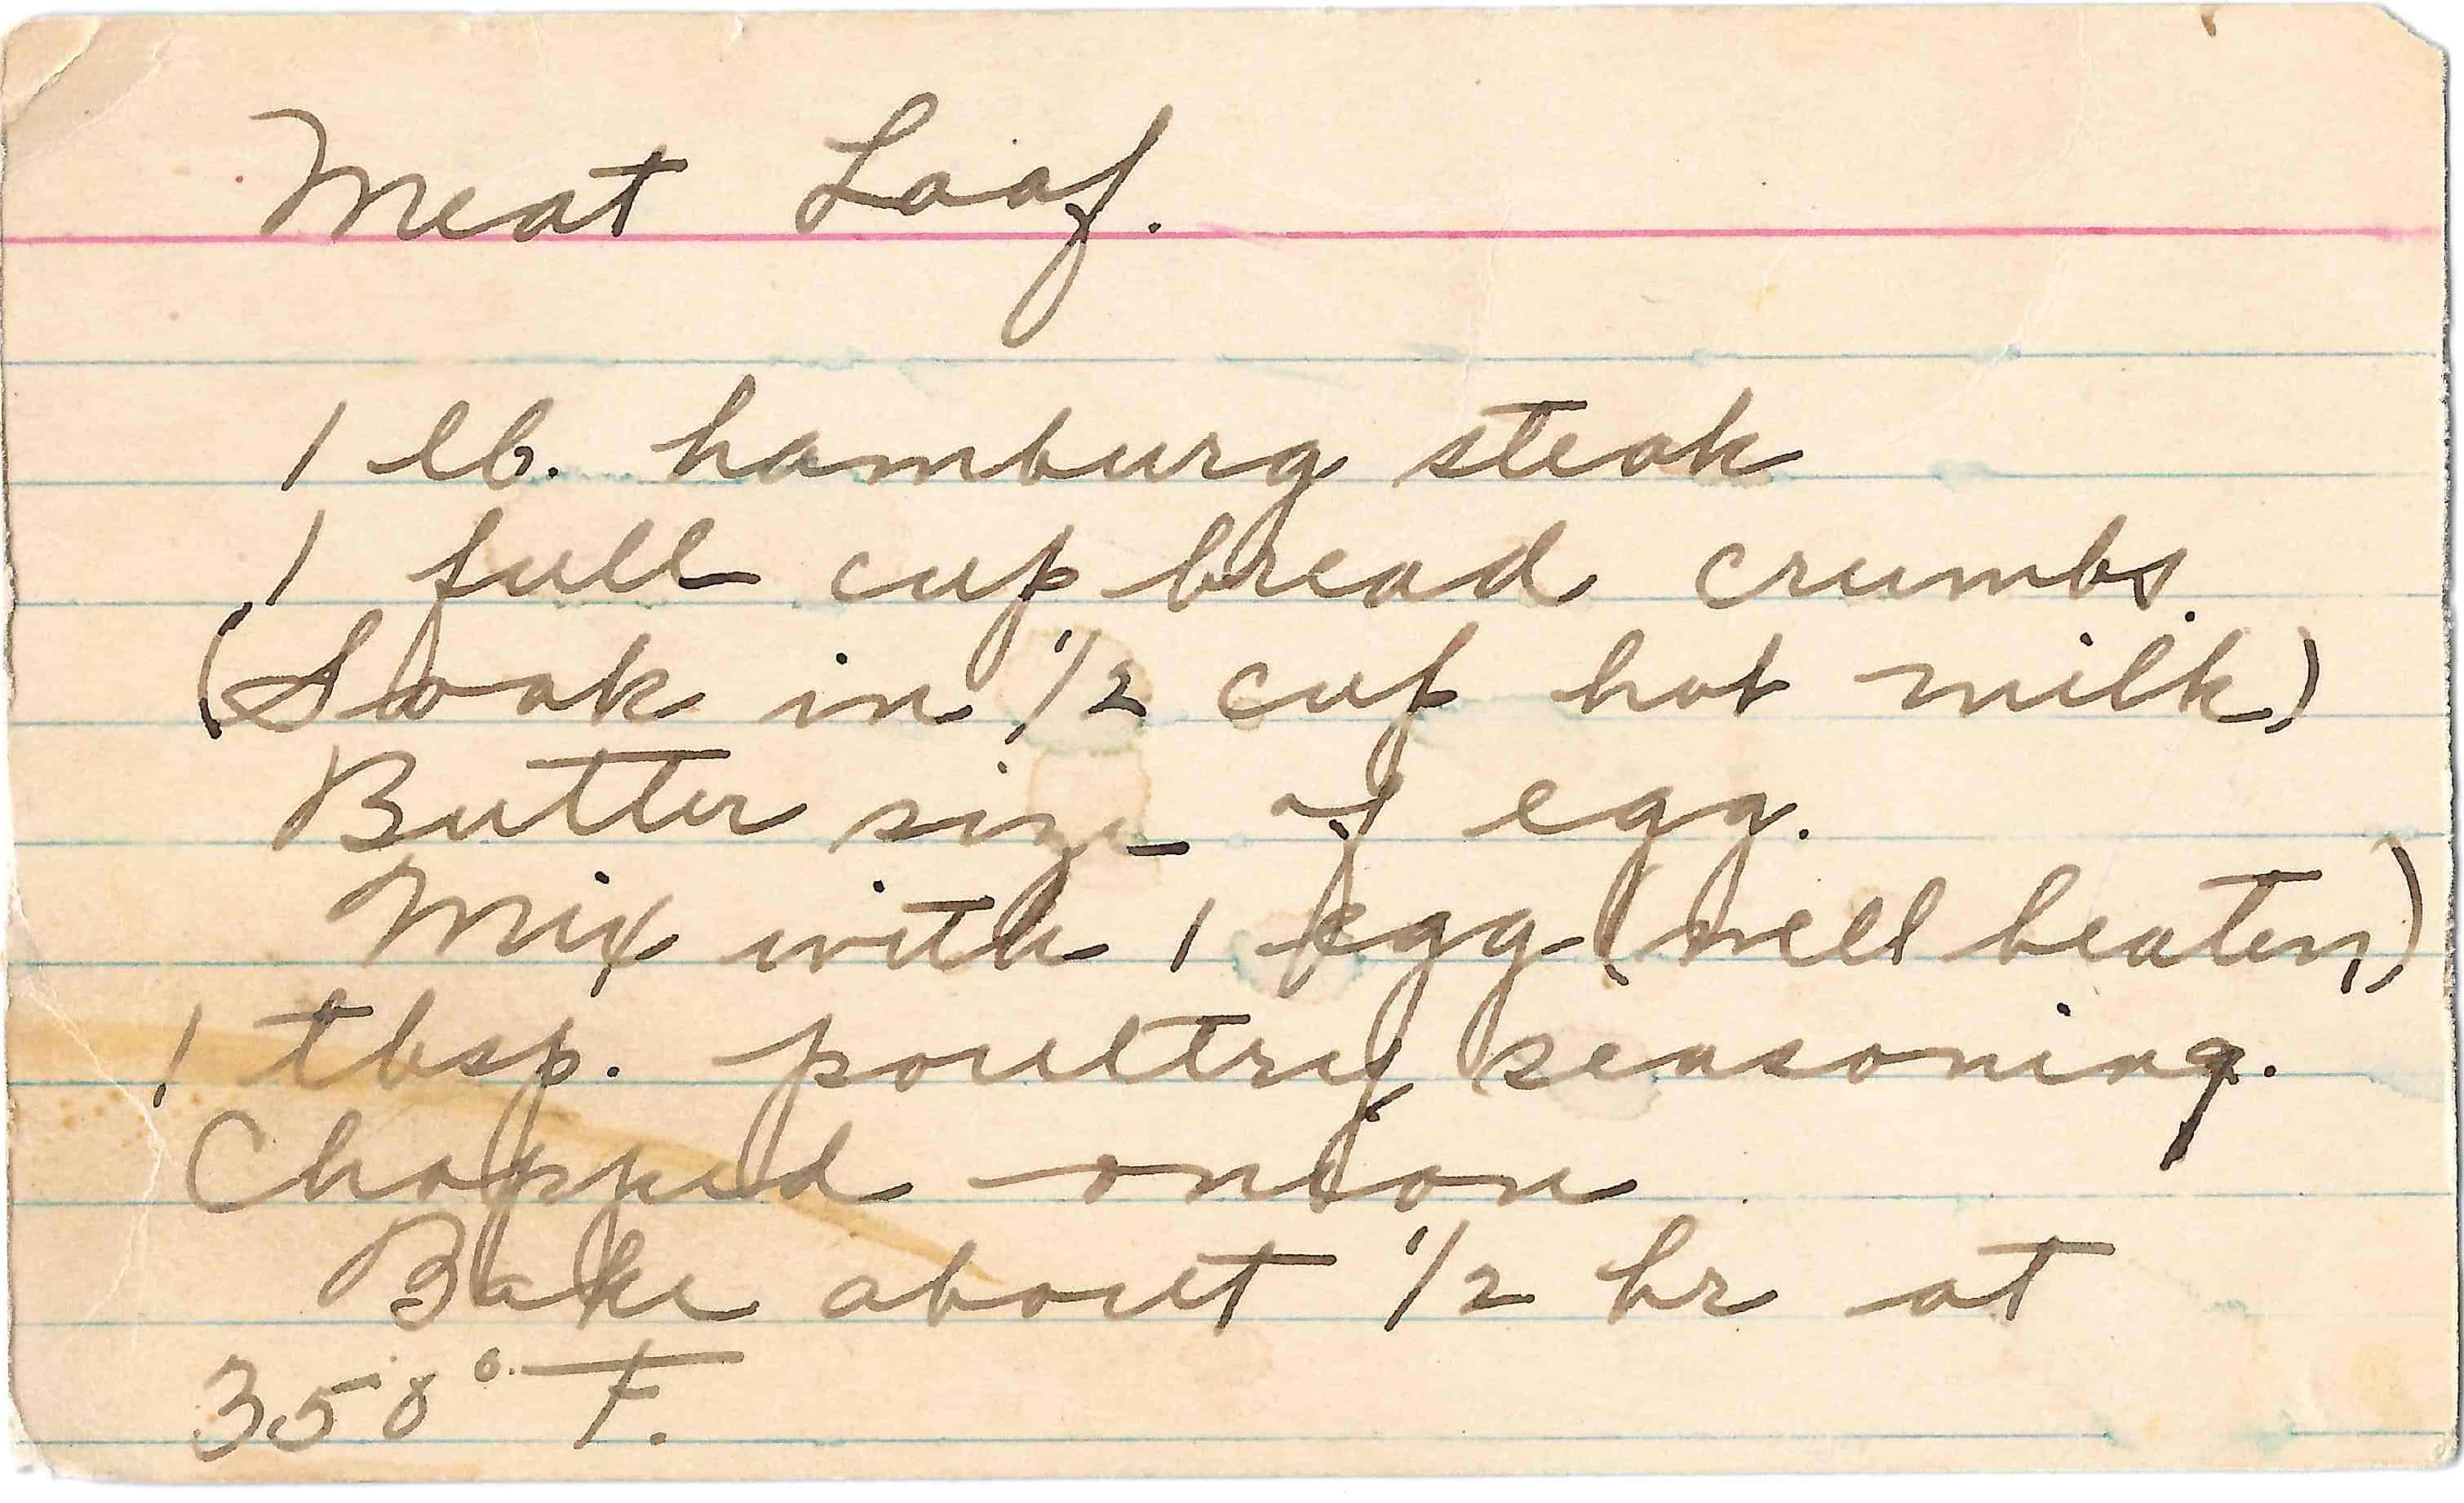 Meat Loaf.
1 lb. hamburg steak
1 full cup bread crumbs.
(Soak in 1/2 cup hot milk)
Butter size of egg.
Mix with 1 egg (well beaten)
1 tbsp. poultry seasoning.
Chopped onion
Bake about 1/2 hr at
350° F.